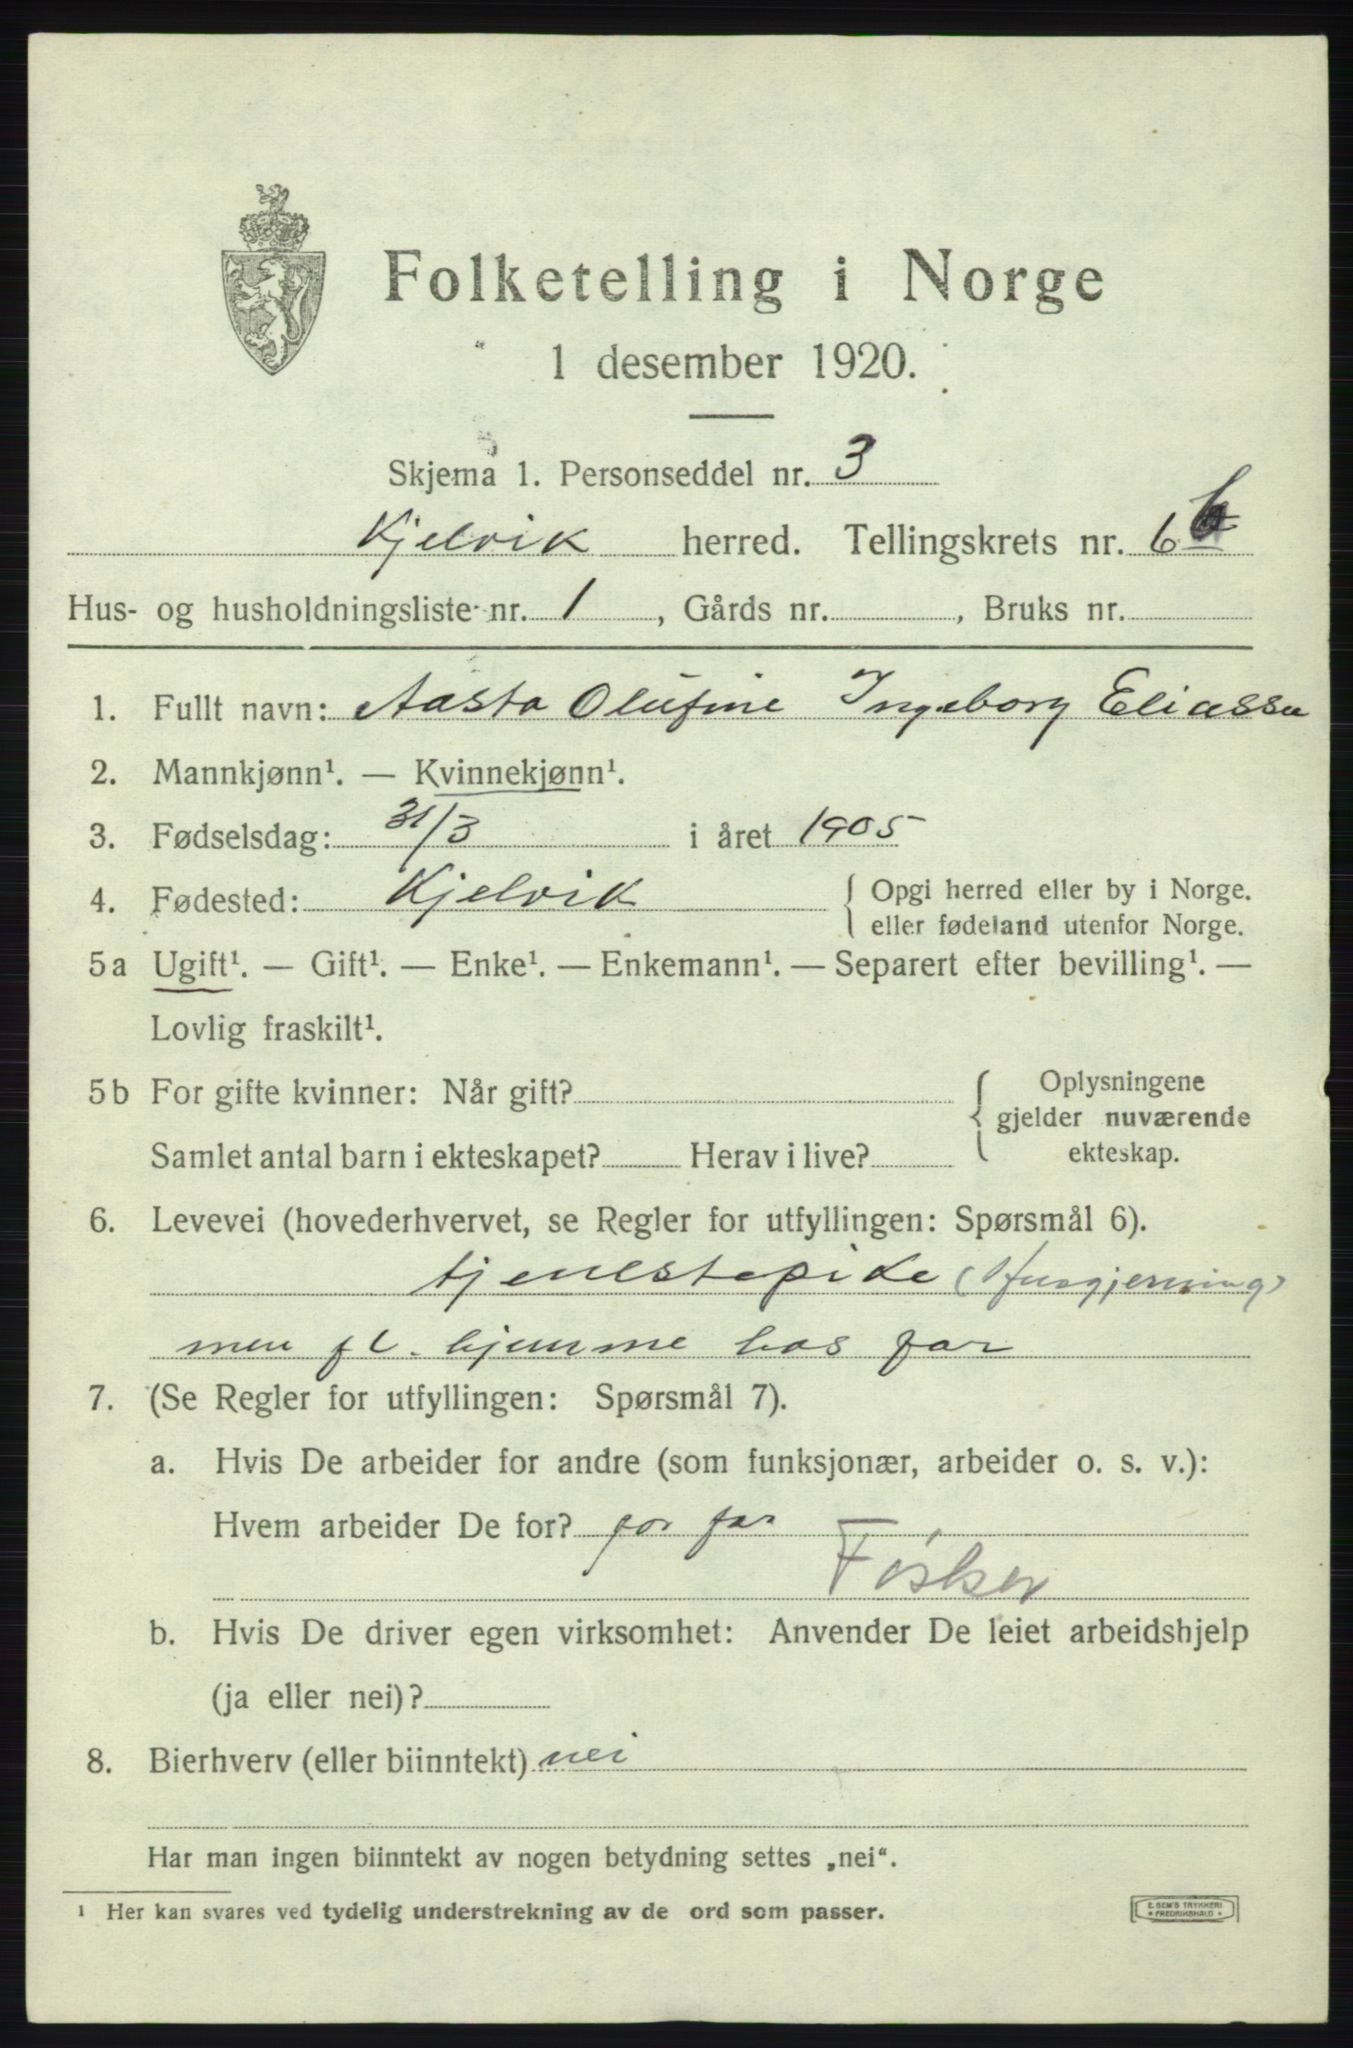 Folketelling i Norge
1 desember 1920.
Skjema 1. Personseddel nr. 3
Kjelvik herred. Tellingskrets nr. 6 b
Hus- og husholdningsliste nr. 1, Gårds nr. , Bruks nr.
1. Fullt navn: Aasta Olufine Ingeborg Eliassen
2. Mannkjønn¹. — Kvinnekjønn¹.
3. Fødselsdag: 31/3 i året 1905
4. Fødested: Kjelvik { Opgi herred eller by i Norge.
eller fødeland utenfor Norge.
5a Ugift¹. — Gift¹. — Enke¹. — Enkemann¹. — Separert efter bevilling¹. —
Lovlig fraskilt¹.
5b For gifte kvinner: Når gift?
Samlet antal barn i ekteskapet? Herav i live?
{ Oplysningene
gjelder nuværende
ekteskap.
6. Levevei (hovederhvervet, se Regler for utfyllingen: Spørsmål 6).
tjenestepike (Husgjerning)
men f t. hjemme hos far
7. (Se Regler for utfyllingen: Spørsmål 7).
a. Hvis De arbeider for andre (som funksjonær, arbeider o. s. v.):
Hvem arbeider De for? for far
Fisker
b. Hvis De driver egen virksomhet: Anvender De leiet arbeidshjelp
(ja eller nei)?
8. Bierhverv (eller biinntekt) nei
Har man ingen biinntekt av nogen betydning settes „nei“.
¹ Her kan svares ved tydelig understrekning av de ord som passer.
E. SEM'S TRYKKERI
* FREDRIKSHALD *